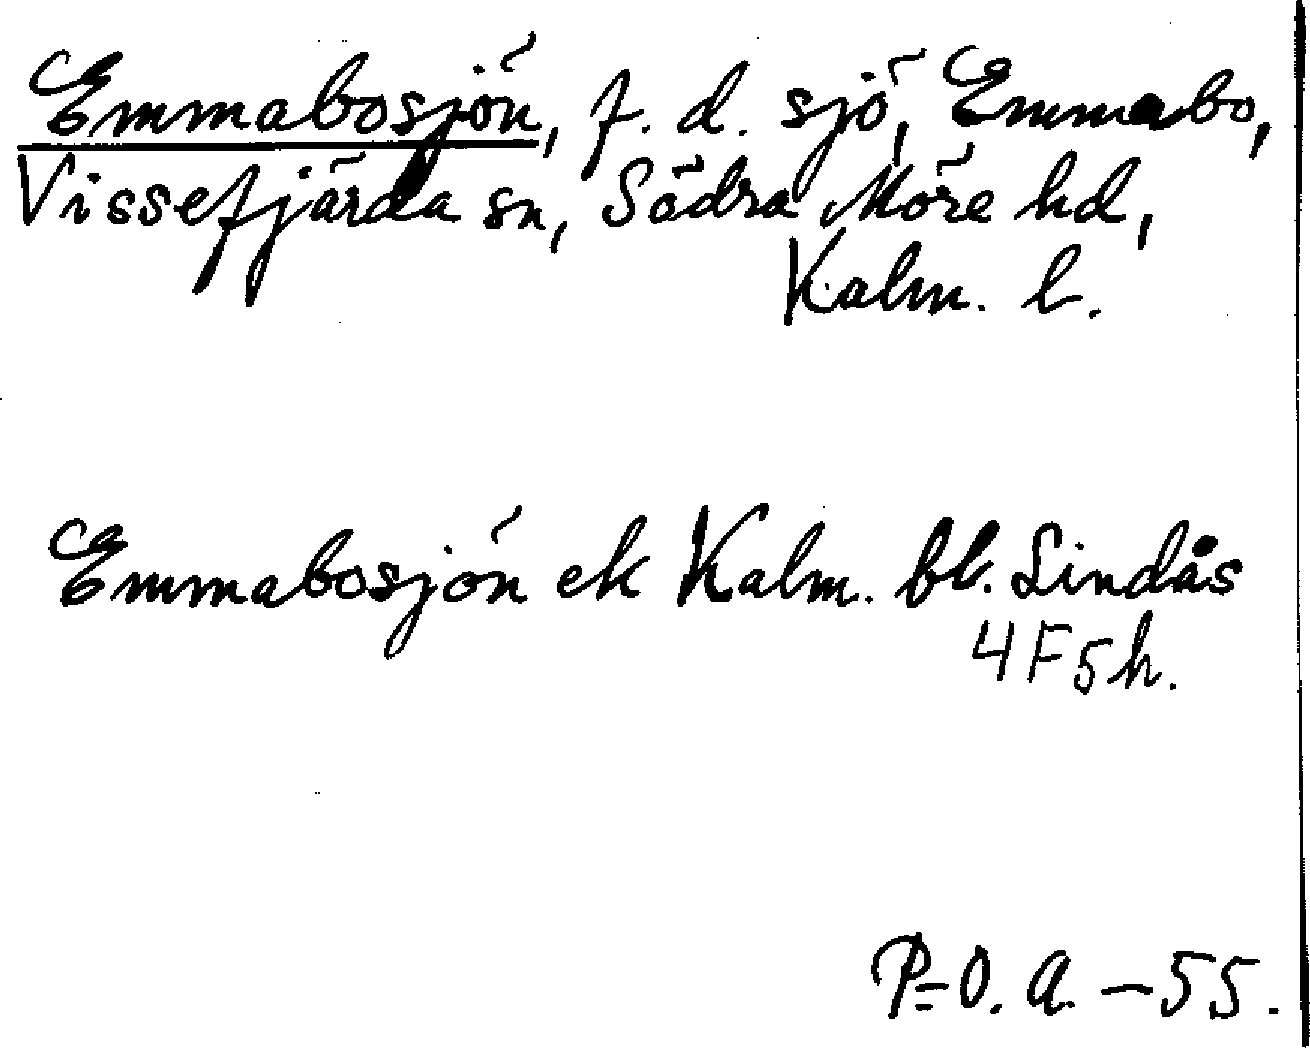 Emmabosjön, f. d. sjö, Emmabo,
Vissefjärda sn, Södra Möre hd,
Kalm. l.
Emmabosjön ek Kalm. bl. Lindås
4F5h.
P-O. A. - 55.